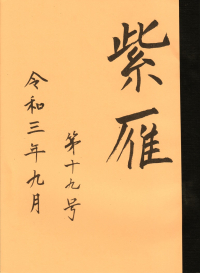 紫雁
第十九号
令和三年九月